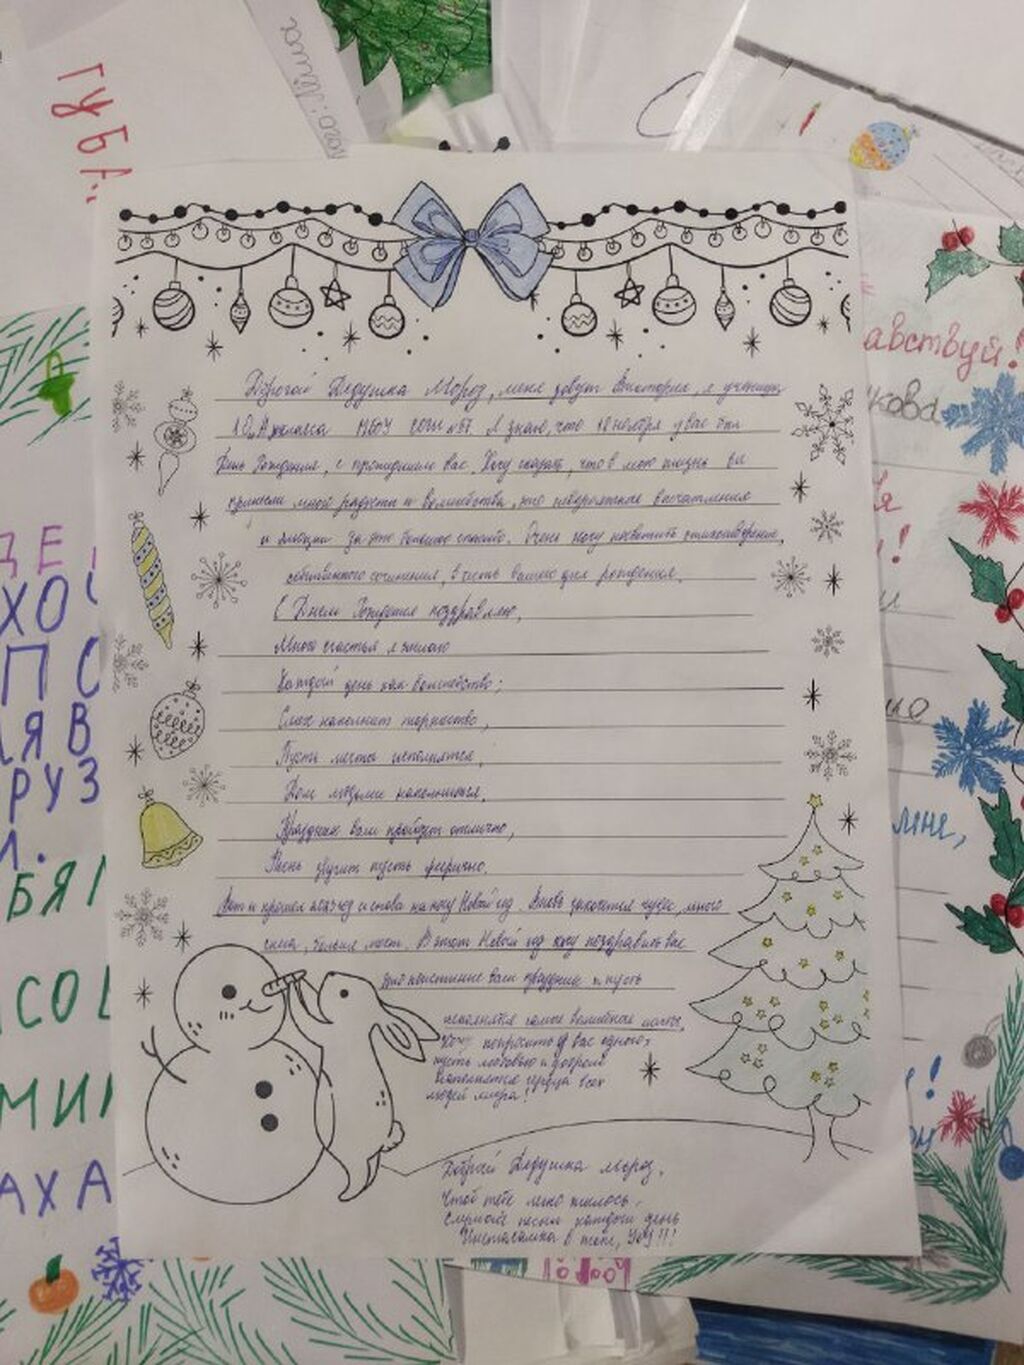 Дорогой Дедушка Мороз, меня зовут Виктория, я ученица
10 "А" класса МБОУ СОШ №67. Я знаю, что 18 ноября у вас был
День Рождения, с прошедшим вас. Хочу сказать, что в мою жизнь вы
принесли много радости и волшебства, это невероятные впечатления
и эмоции за это большое спасибо. Очень хочу посвятить стихотворение,
собственного сочинения, в честь вашего дня рождения.
С Днем Рождения поздравляю,
Много счастья я желаю
Каждый день как волшебство;
наполнит торжество,
Пусть мечты исполнятся,
Дом людьми наполнится.
Праздник ваш пройдет отлично,
Песнь звучит пусть
Вот и прошел 2023 год и снова на носу Новый год. Вновь захочется чудес, много
снега, В этот Новый год хочу поздравить вас
это поистине ваш праздник и пусть
исполнятся самые волшебные мечты,
Хочу попросить у вас одного,
пусть любовью и добром
наполнятся сердца всех
людей мира!
Добрый Дедушка Мороз,
Чтоб тебе легко жилось.
песни каждый день
в топе, УОУ!!!
ГУБА
авствуй!
кова
мне,
ДЕ
ХО
ПО
ЯВ
РУЗ
БЯ
СО
МИ
АХА